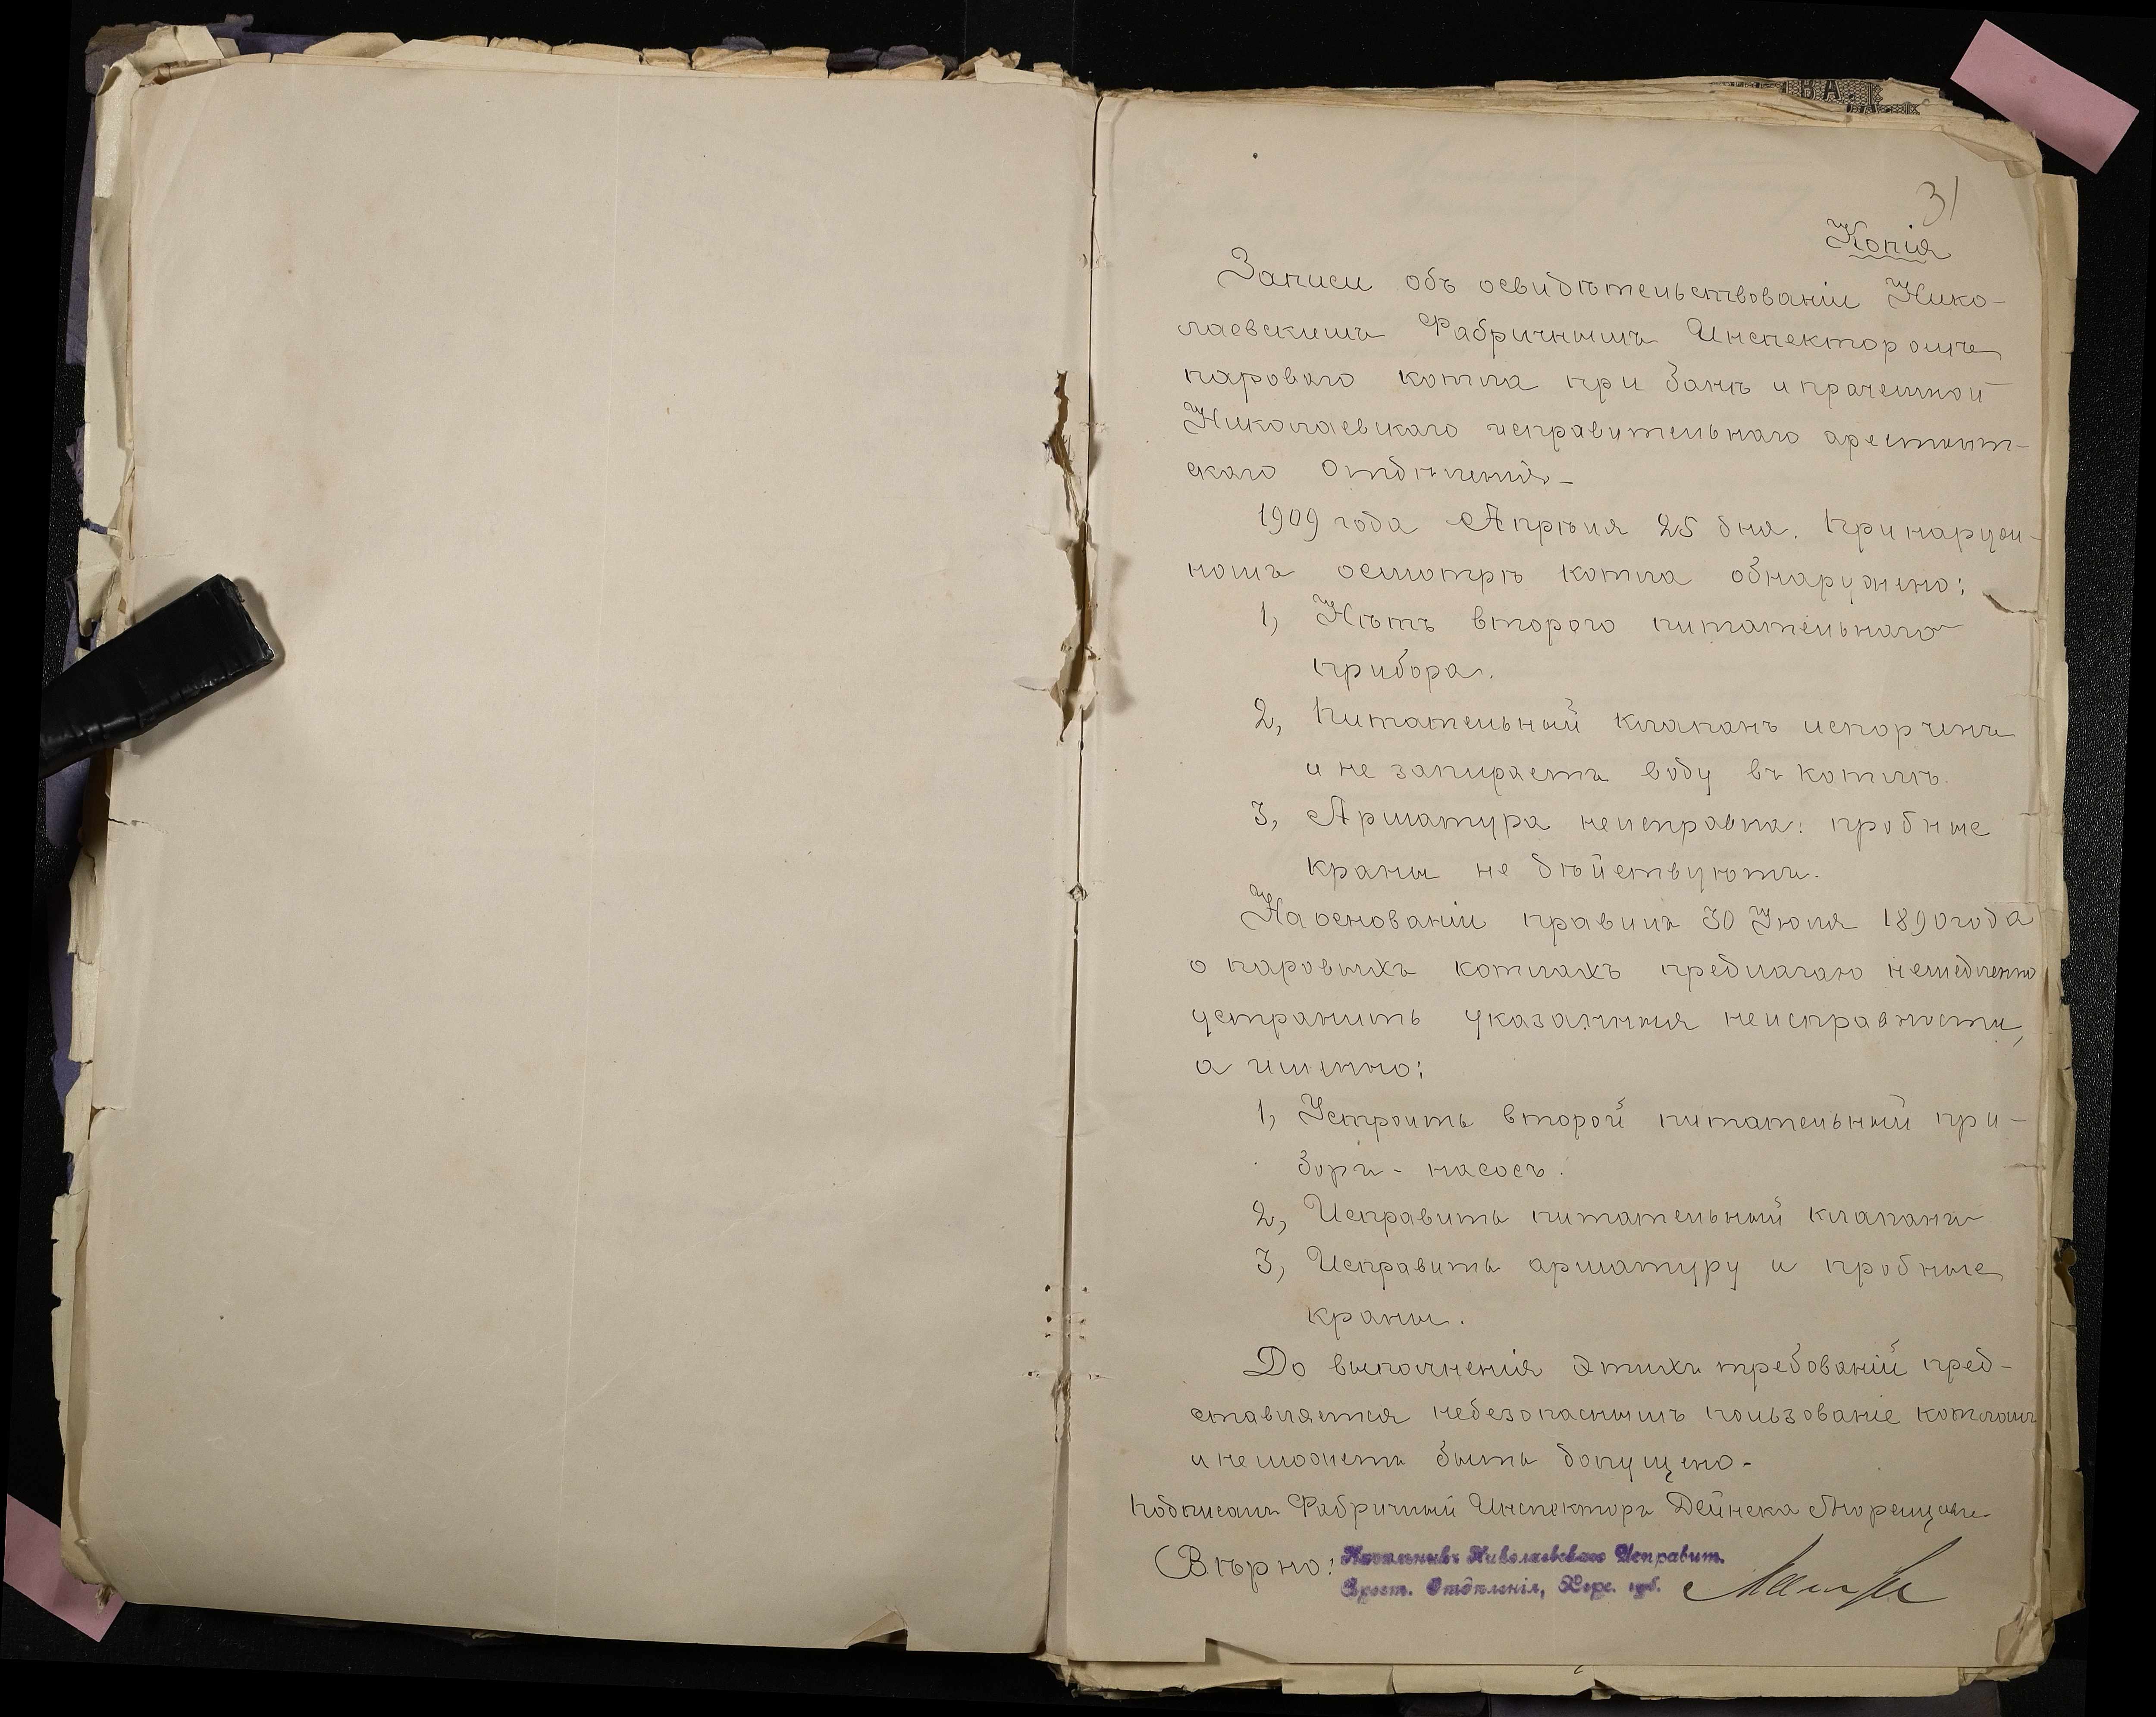 31
Копія
Записи объ освидѣтельствованіи Нико-
лаевскимъ Фабричнымъ Инспекторомъ
парового котла при банѣ и прачешной
Николаевскаго исправительнаго арестант-
скаго Отдѣленія-
1909 года Апрѣля 25 дня. При наруж-
номъ осмотрѣ котла обнаружено:
1, Нѣтъ второго питательнаго
прибора.
2, Питательный клапанъ испорченъ
и не запираетъ воду въ котлѣ.
3, Арматура неисправна: пробные
краны не дѣйствуютъ.
На основаніи правилъ 30 Іюля 1890 года
о паровыхъ котлахъ предлагаю немедленно
устранить указанныя неисправности,
а именно:
1, Устроить второй питательный при-
боръ - насосъ.
2, Исправить питательный клапанъ
3, Исправить арматуру и пробные
краны.
До выполненія этихъ требованій пред-
ставляется небезопаснымъ пользованіе котломъ
и не можетъ быть допущено-
Подписалъ Фабричный Инспекторъ Дейнека
Вѣрно: Начальникъ Николаевскаго Исправит.
Арест. Отдѣленія, Херс. губ.